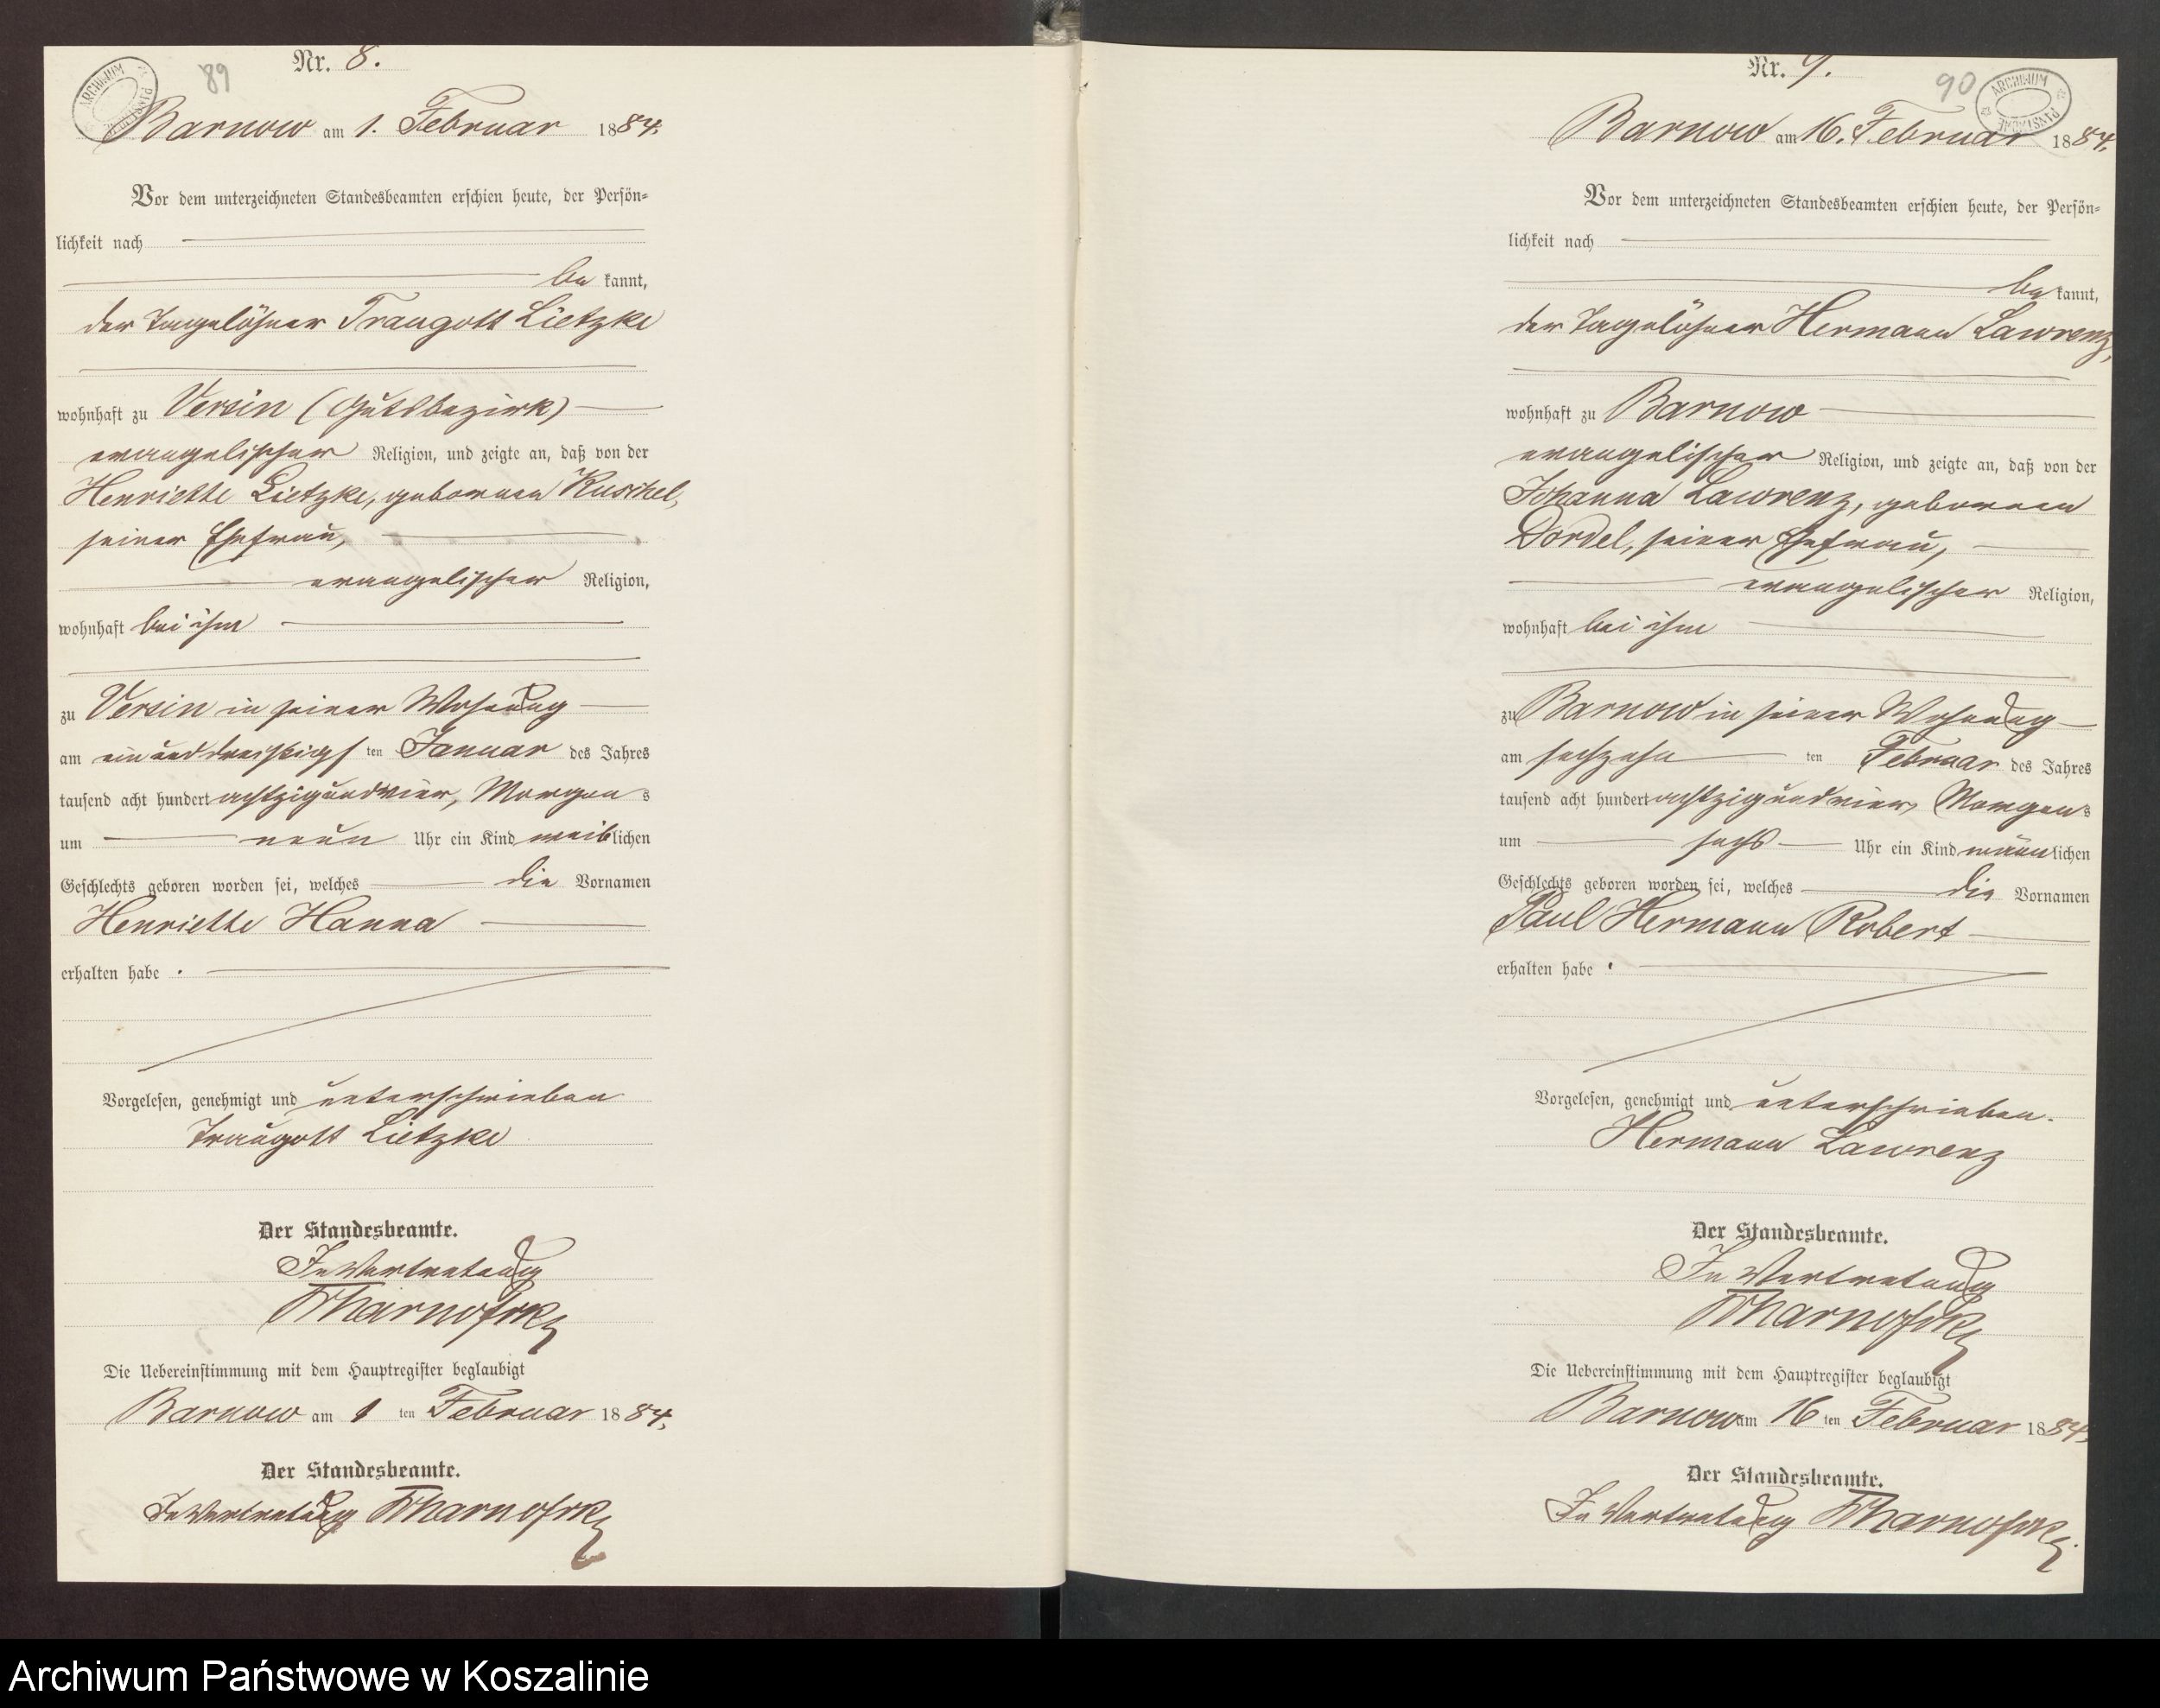 89
Nr. 8.
ARCHIWUM PAŃSTWOWE
Barnow am 1. Februar 1884.
Vor dem unterzeichneten Standesbeamten erschien heute, der Persön-
lichkeit nach
be kannt,
der Tagelöhner Traugott Lietzke
wohnhaft zu Versin (Gutsbezirk)
evangelischer Religion, und zeigte an, daß von der
Henriette Lietzke, geborenen Kuschel,
seiner Ehefrau,
evangelischer Religion,
wohnhaft bei ihm
zu Versin in seiner Wohnung
am ein und dreißigs ten Januar des Jahres
tausend acht hundert achtzig und vier, Morgens
um neun Uhr ein Kind weiblichen
Geschlechts geboren worden sei, welches die Vornamen
Henriette Hanna
erhalten habe.
Vorgelesen, genehmigt und unterschrieben
Traugott Lietzke
Der Standesbeamte.
In Vertretung
Die Uebereinstimmung mit dem Hauptregister beglaubigt
Barnow am 1 ten Februar 1884.
Der Standesbeamte.
In Vertretung
Nr. 9.
90
ARCHIWUM PAŃSTWOWE
Barnow am 16. Februar 1884.
Vor dem unterzeichneten Standesbeamten erschien heute, der Persön-
lichkeit nach
be kannt,
der Tagelöhner Hermann Lawrenz,
wohnhaft zu Barnow
evangelischer Religion, und zeigte an, daß von der
Johanna Lawrenz, geborenen
Dordel, seiner Ehefrau,
evangelischer Religion,
wohnhaft bei ihm
zu Barnow in seiner Wohnung
am sechzehn ten Februar des Jahres
tausend acht hundert achtzig und vier, Morgens
um sechs Uhr ein Kind männlichen
Geschlechts geboren worden sei, welches die Vornamen
Paul Hermann Robert
erhalten habe.
Vorgelesen, genehmigt und unterschrieben.
Hermann Lawrenz
Der Standesbeamte.
In Vertretung
Die Uebereinstimmung mit dem Hauptregister beglaubigt
Barnow am 16 ten Februar 1884.
Der Standesbeamte.
In Vertretung
Archiwum Państwowe w Koszalinie